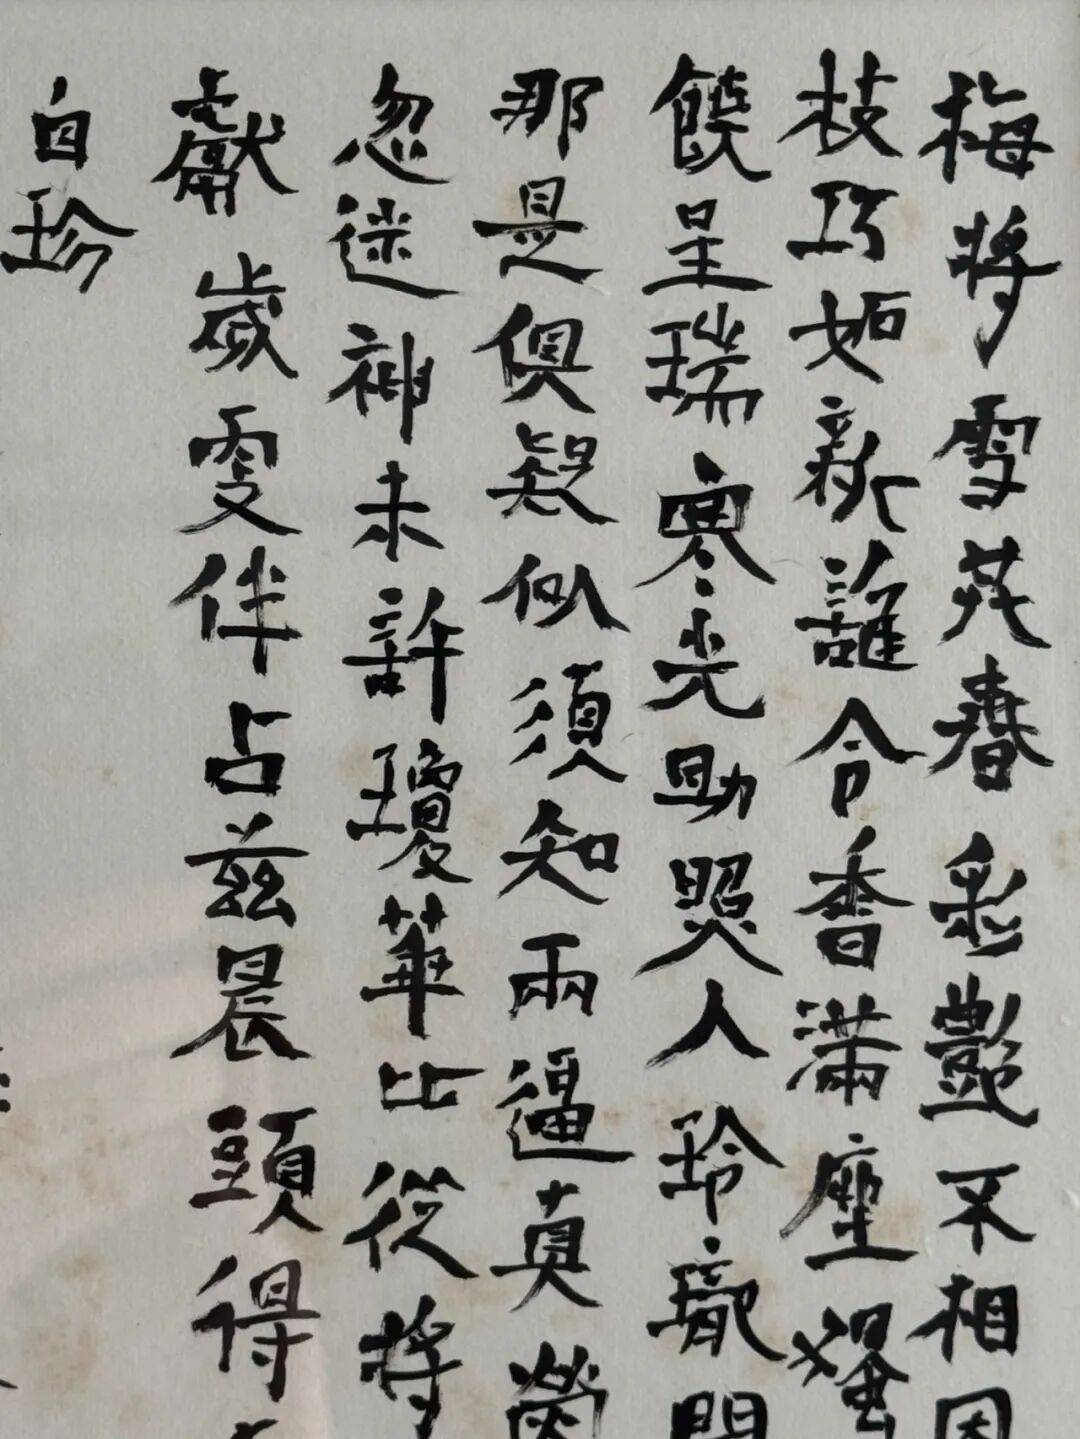 梅將雪共春彩豔不相因
枝巧妬新誰令香滿座獨
饒呈瑞寒光助照人玲瓏開
那是俱疑似須知兩逼真熒
忽迷神未許瓊華比從將
獻歲更伴占茲晨頭得
自珍